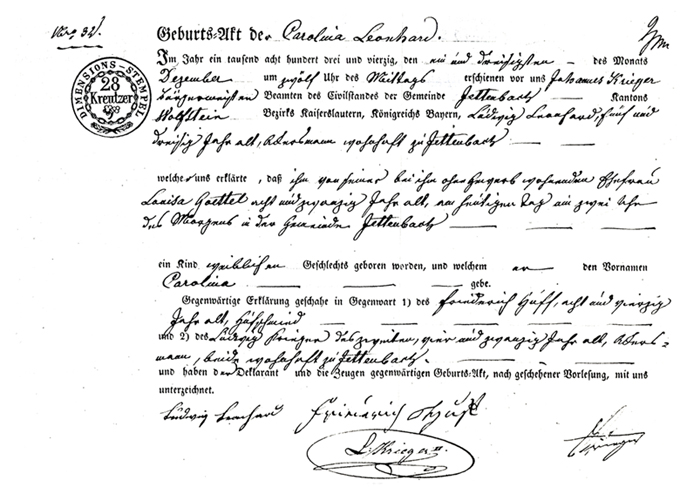 Nro 32.
Geburts-Akt der Carolina Leonhard.
DIMENSIONS-STEMPEL
28
Kreutzer
Im Jahr ein tausend acht hundert drei und vierzig, den ein und dreisigsten des Monats
Dezember um zwölf Uhr des Mittags erschienen vor uns Johannes Krieger
Bürgermeister Beamten des Civilstandes der Gemeinde Jettenbach Kantons
Wolfstein Bezirks Kaiserslautern, Königreichs Bayern, Ludwig Leonhard, fünf und
dreisig Jahr alt, Ackersmann wohnhaft zu Jettenbach
welcher uns erklärte, daß ihm von seiner bei ihm ohne Gewerb wohnenden Ehefrau
Louisa Goettel acht und zwanzig Jahr alt, am heutigen Tag um zwei Uhr
des Morgens in der Gemeinde Jettenbach
ein Kind weiblichen Geschlechts geboren worden, und welchem er den Vornamen
Carolina gebe.
Gegenwärtige Erklärung geschahe in Gegenwart 1) des Friederich Huff, acht und vierzig
Jahr alt,
und 2) des Ludwig Krieger des zweiten, vier und zwanzig Jahr alt, Ackers-
mann, beide wohnhaft zu Jettenbach.
und haben der Deklarant und die Zeugen gegenwärtigen Geburts-Akt, nach geschehener Vorlesung, mit uns
unterzeichnet.
Ludwig Leonhard Friederich Huff
L. Krieger II.
Krieger